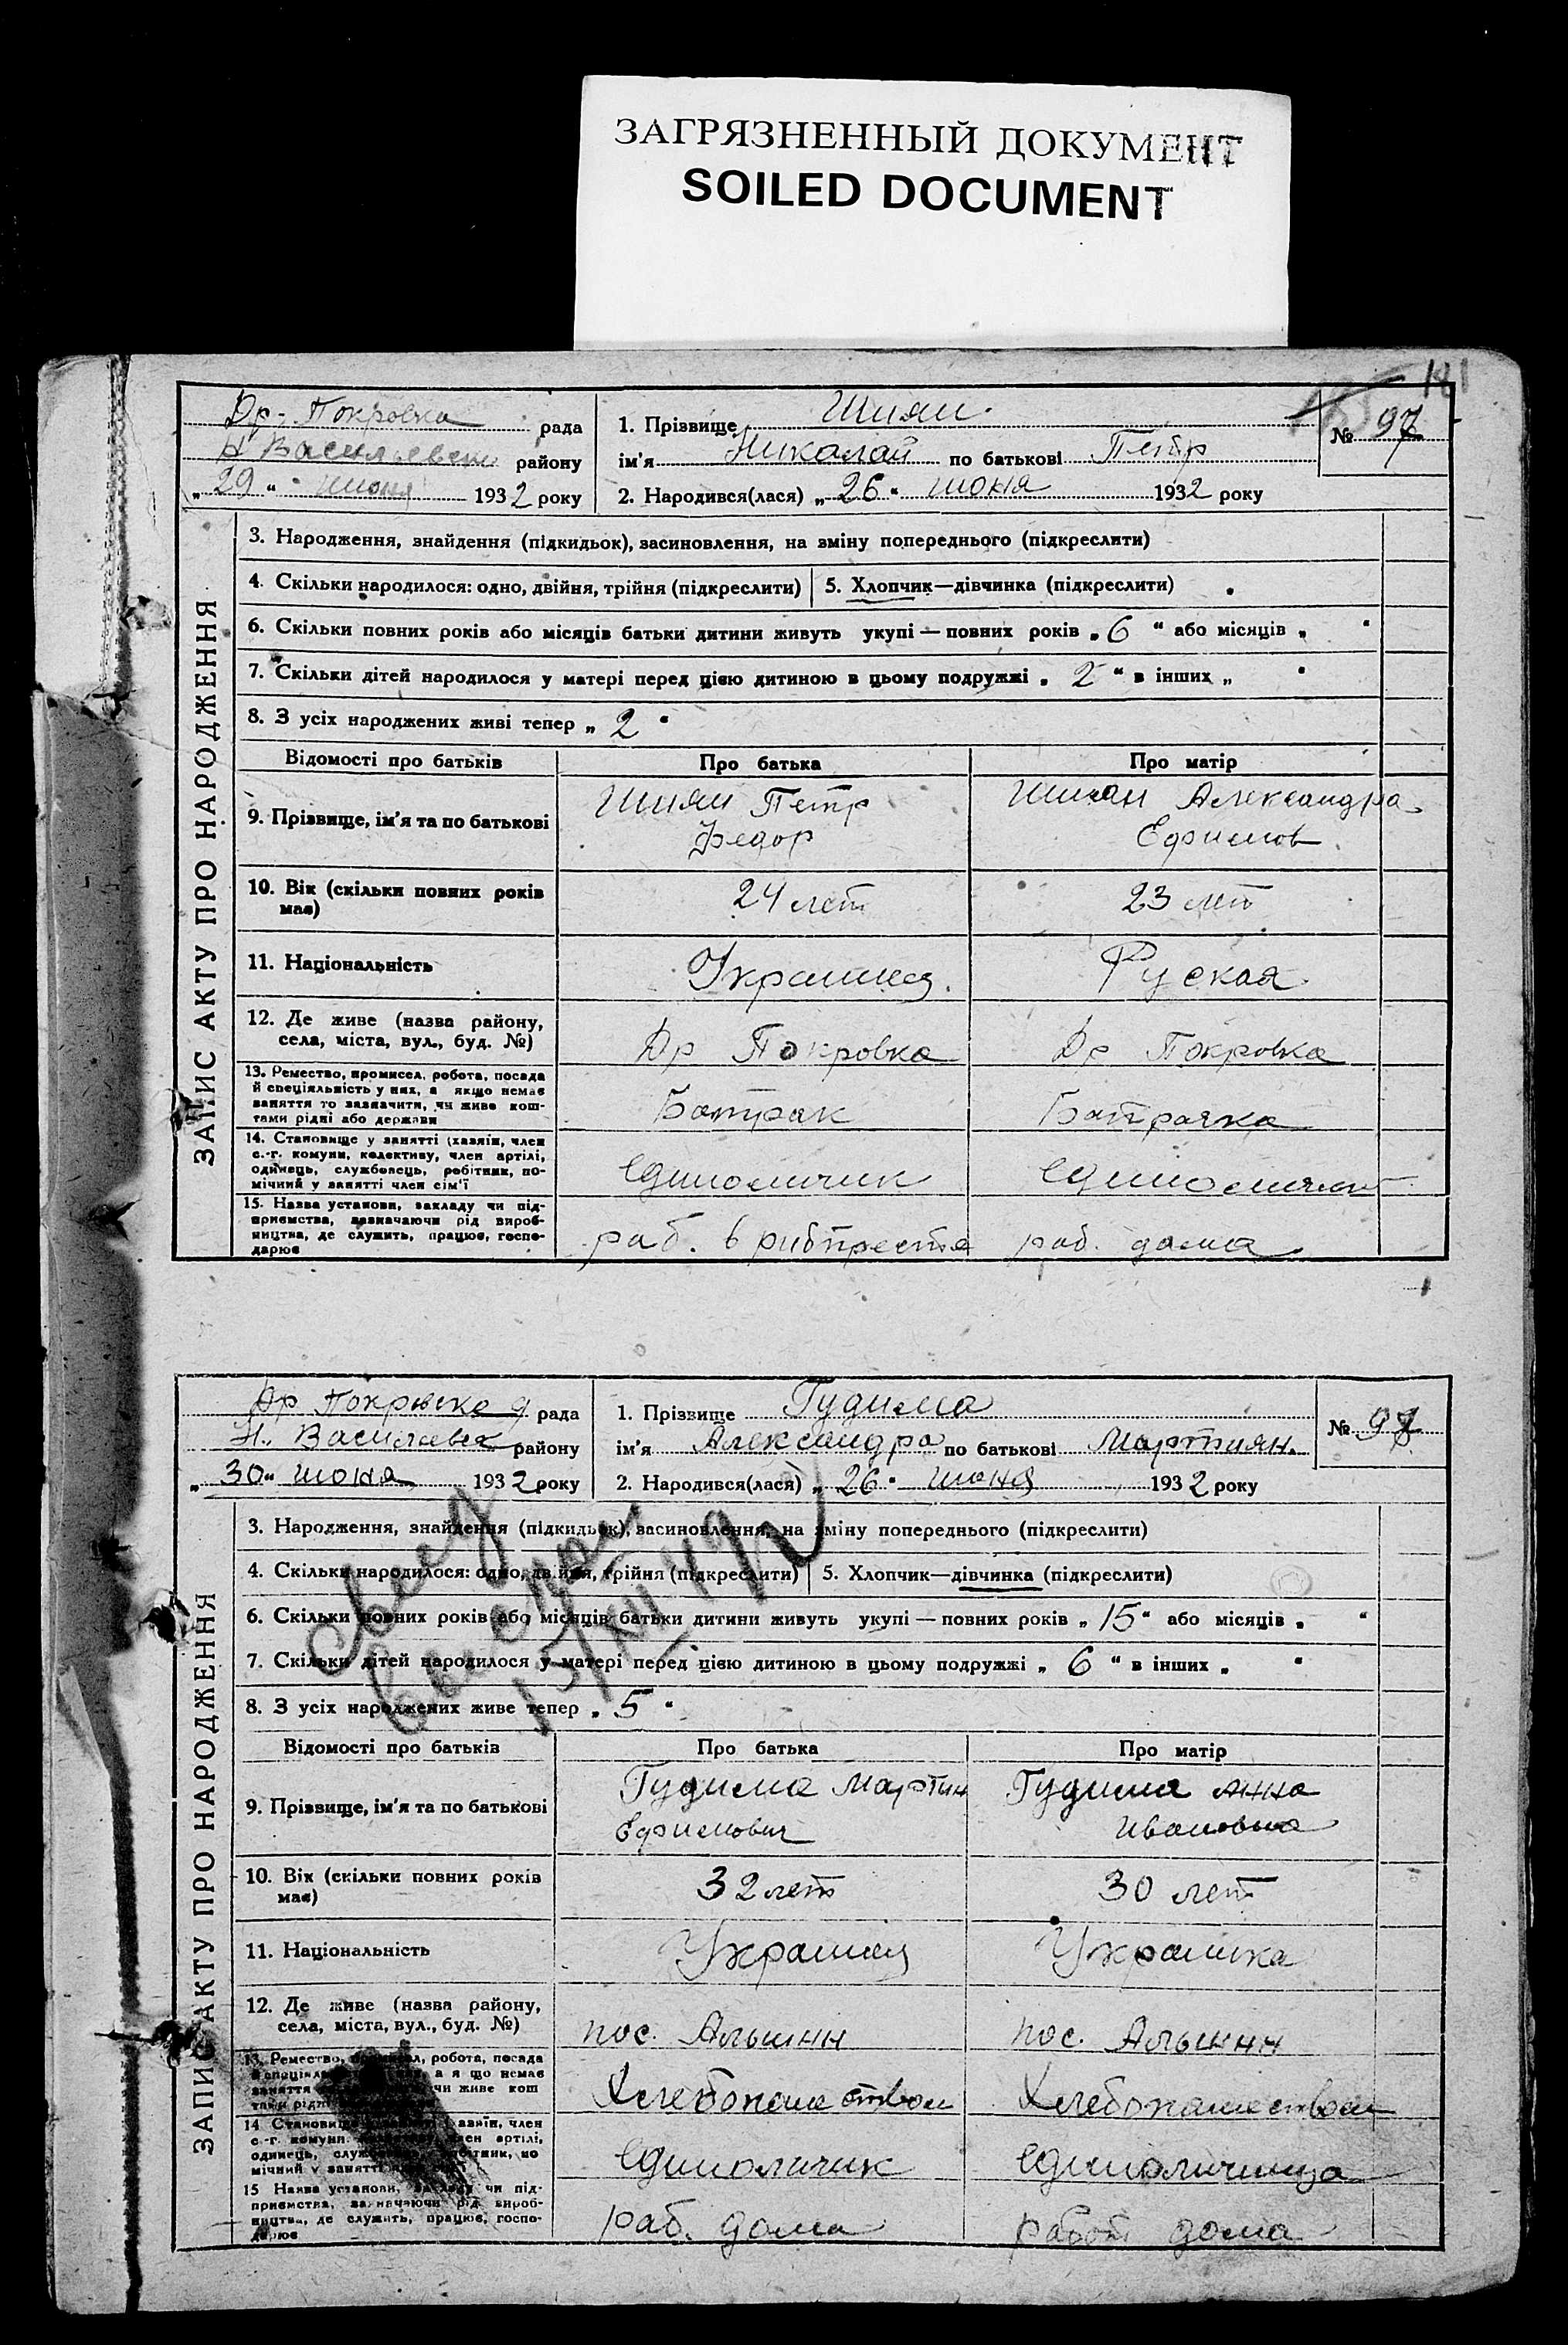 ЗАГРЯЗНЕННЫЙ ДОКУМЕНТ
SOILED DOCUMENT
181
Др-Покровка рада
Н Васильевск району
„29“ июня 1932 року
1. Прізвище Шиян
ім'я Николай по батькові Петр
2. Народився(лася) „26“ июня 1932 року
№ 97
ЗАПИС АКТУ ПРО НАРОДЖЕННЯ
3. Народження, знайдення (підкидьок), засиновлення, на зміну попереднього (підкреслити)
4. Скільки народилося: одно, двійня, трійня (підкреслити) 5. Хлопчик—дівчинка (підкреслити)
6. Скільки повних років або місяців батьки дитини живуть укупі — повних років „6“ або місяців „ “
7. Скільки дітей народилося у матері перед цією дитиною в цьому подружжі „2“ в інших „ “
8. З усіх народжених живі тепер „2“
Відомості про батьків Про батька Про матір
9. Прізвище, ім'я та по батькові
Шиян Петр
Федор
Шиян Александра
Ефимов
10. Вік (скільки повних років
має)
24 лет
23 лет
11. Національність
Украинец
Руская
12. Де живе (назва району,
села, міста, вул., буд. №)
Др Покровка
Др Покровка
13. Ремество, промисел, робота, посада
й спеціяльність у них, а якщо немає
заняття то зазначити, чи живе кош-
тами рідні або держави
Батрак
Батрачка
14. Становище у занятті (хазяїн, член
с.-г. комуни, колективу, член артілі,
одинець, службовець, робітник, по-
мічний у занятті член сім'ї
Единоличник
15. Назва установи, закладу чи під-
приємства, зазначаючи рід вироб-
ництва, де служить, працює, госпо-
дарює
раб. в рибтресте
раб. дома
Др Покровка рада
Н. Василевск району
„30“ июня 1932 року
1. Прізвище Гудима
ім'я Александра по батькові Мартиян.
2. Народився(лася) „26“ июня 1932 року
№ 98
ЗАПИС АКТУ ПРО НАРОДЖЕННЯ
3. Народження, знайдення (підкидьок), засиновлення, на зміну попереднього (підкреслити)
4. Скільки народилося: одно, двійня, трійня (підкреслити) 5. Хлопчик—дівчинка (підкреслити)
6. Скільки повних років або місяців батьки дитини живуть укупі — повних років „15“ або місяців „ “
7. Скільки дітей народилося у матері перед цією дитиною в цьому подружжі „6“ в інших „ “
8. З усіх народжених живе тепер „5“
Відомості про батьків Про батька Про матір
9. Прізвище, ім'я та по батькові
Гудима Мартин
Ефимович
Гудима Анна
Ивановна
10. Вік (скільки повних років
має)
32 лет
30 лет
11. Національність
Украинец
Украинка
12. Де живе (назва району,
села, міста, вул., буд. №)
пос.
пос.
13. Ремество, робота, посада
а немає
заняття чи живе кош
Хлебопашеством
Хлебопашеством
14 Становище член
с.-г. комуни член артілі,
одинець, по
мічний у занятті
Единоличник
Единоличница
15 Назва установи, закладу чи під-
приємства, зазначаючи рід вироб-
ництва, де служить, працює, госпо-
дарює
раб. дома
работ дома